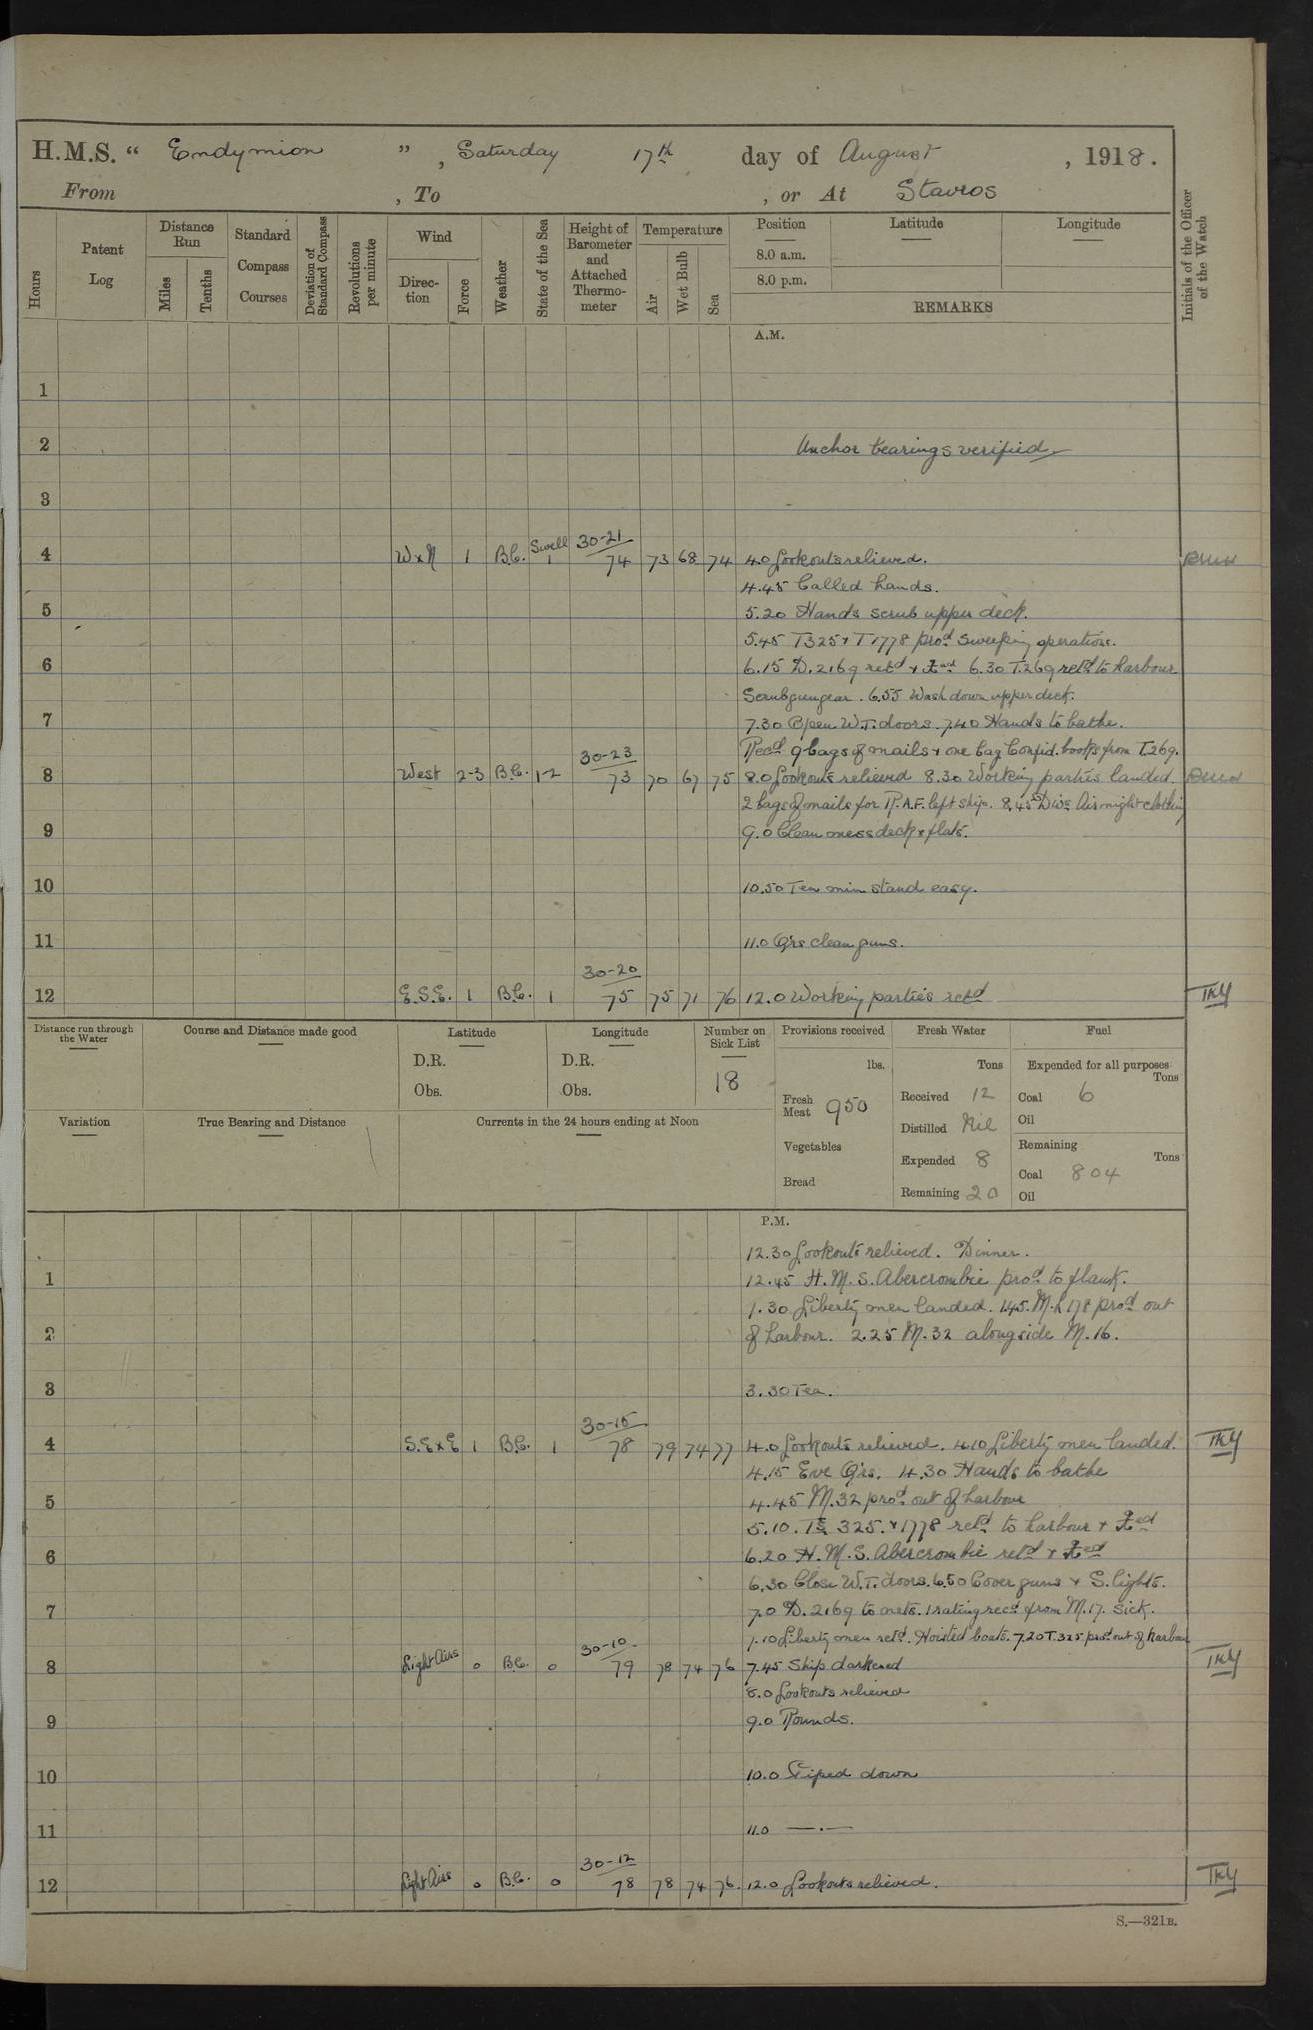 H.M.S. " Endymion " , Saturday 17th day of August , 1918.
From , To , or At Stavros
Hours
Patent Log
Distance Run
Miles
Tenths
Standard Compass Courses
Deviation of Standard Compass
Revolutions per minute
Wind
Direction
Force
Weather
State of the Sea
Height of Barometer and Attached Thermometer
Temperature
Air
Wet Bulb
Sea
Position
8.0 a.m.
8.0 p.m.
Latitude
Longitude
REMARKS
Initials of the Officer of the Watch
A.M.
1
2 Anchor bearings verified
3
30-21
4 WxN 1 B.C. Swell 1 74 73 68 74 4.0 Lookouts relieved.
4.45 Called hands.
5 5.20 Hands scrub upper deck.
5.45 T325 & T1778 procd sweeping operations.
6 6.15 D.2169 retd & 6.30 T.269 retd to harbour
Scrub gungear. 6.55 Wash down upper deck.
7 7.30 Open W.T. doors. 7.40 Hands to bathe.
30-23 Recd 9 bags of mails & one bag Confid. books from T.269.
8 West 2-3 B.C. 1-2 73 70 67 75 8.0 Lookouts relieved 8.30 Working parties landed.
2 bags of mails for R.A.F. left ship. 8.45 Divs. Air night clothing
9 9.0 Clean mess deck & flats.
10 10.50 Ten min stand easy.
11 11.0 Qrs clean guns.
30-20
12 E.S.E. 1 B.C. 1 75 75 71 76 12.0 Working parties retd TKY
Distance run through the Water
Course and Distance made good
Latitude
D.R.
Obs.
Longitude
D.R.
Obs.
Number on Sick List
18
Provisions received
lbs.
Fresh Meat 950
Vegetables
Bread
Fresh Water
Tons
Received 12
Distilled Nil
Expended 8
Remaining 20
Fuel
Expended for all purposes
Tons
Coal 6
Oil
Remaining
Tons
Coal 804
Oil
Variation
True Bearing and Distance
Currents in the 24 hours ending at Noon
P.M.
12.30 Lookouts relieved. Dinner.
1 12.45 H.M.S. Abercrombie procd to flank.
1.30 Liberty men landed. 1.45. M.L 178 procd out
2 of harbour. 2.25 M.32 alongside M.16.
3 3.30 Tea.
30-15
4 S.ExE 1 B.C. 1 78 79 74 77 4.0 Lookouts relieved. 4.10 Liberty men landed. TKY
4.15 Eve Qrs. 4.30 Hands to bathe
5 4.45 M.32 procd out of harbour
5.10. Ts 325. & 1778 retd to harbour &
6 6.20 H.M.S. Abercrombie retd &
6.30 Close W.T. doors. 6.50 Cover guns & S. lights.
7 7.0 D.2169 to nets. 1 rating recd from M.17. sick.
30-10 7.10 Liberty men retd. Hoisted boats. 7.20 T.325 procd out of harbour
8 Light Airs 0 B.C. 0 79 78 74 76 7.45 Ship darkened TKY
8.0 Lookouts relieved
9 9.0 Rounds.
10 10.0 Piped down
11 11.0 —.—
30-12
12 Light Airs 0 B.C. 0 78 78 74 76. 12.0 Lookouts relieved. TKY
S.—321B.